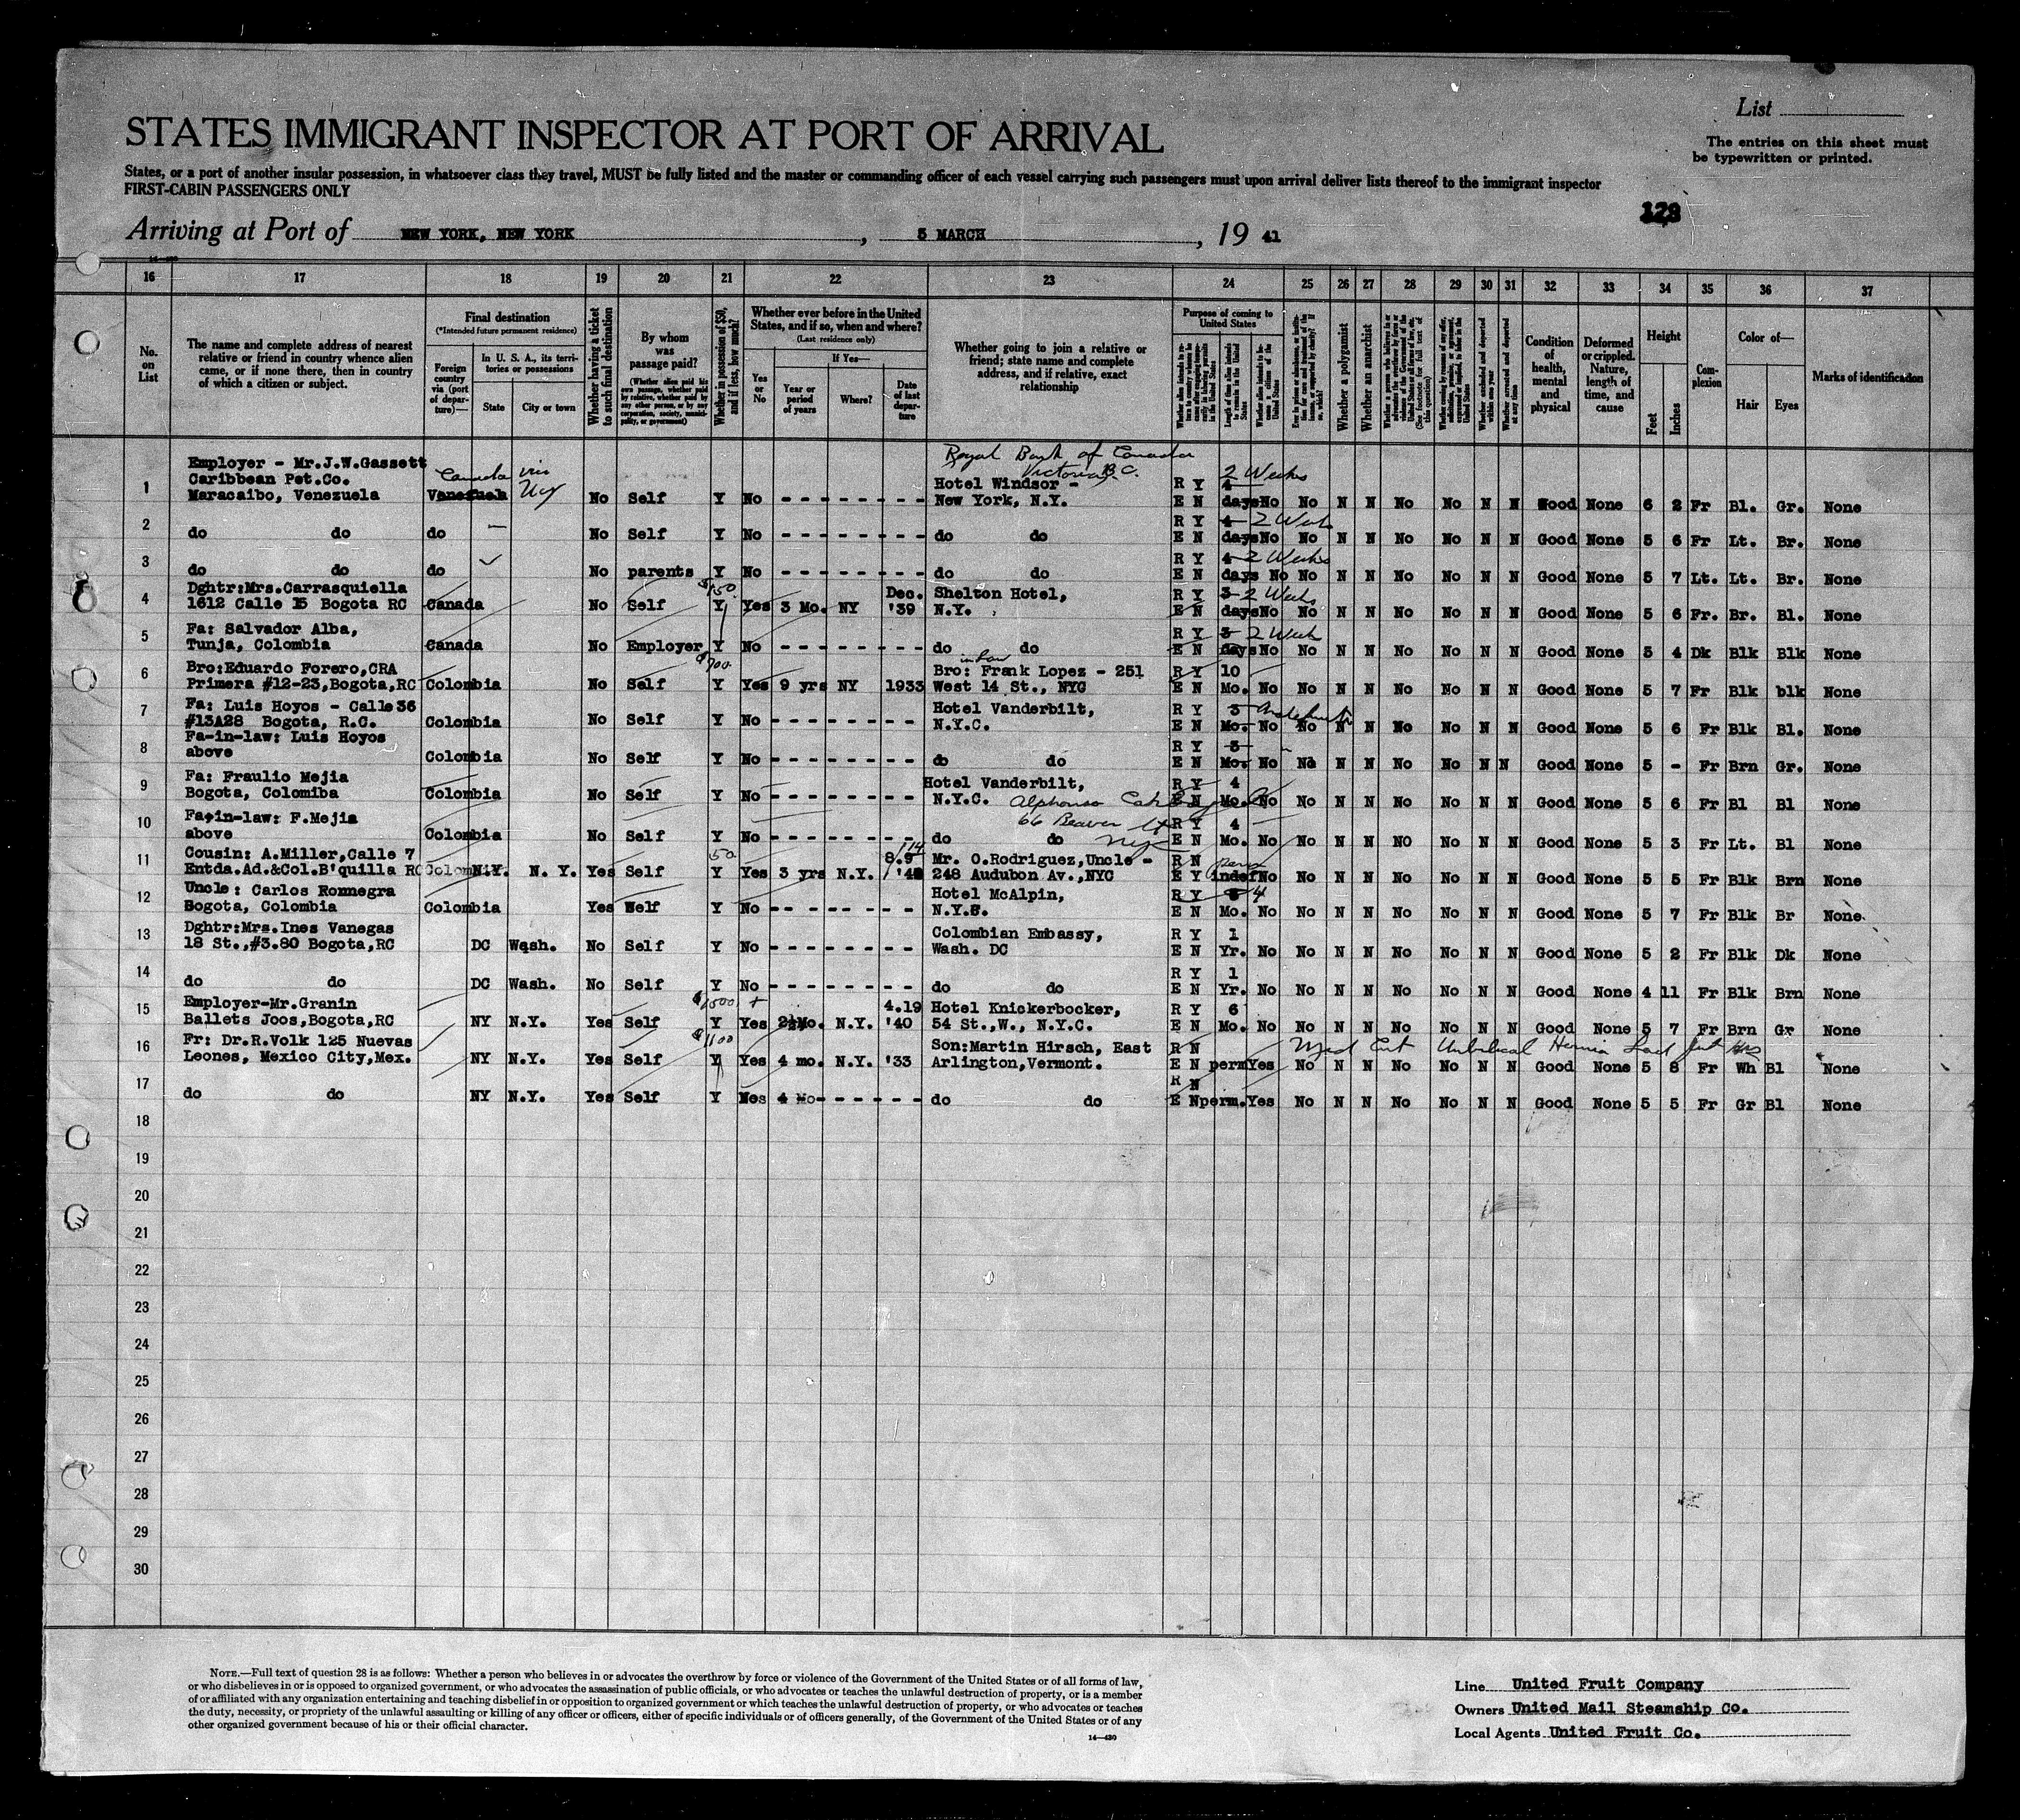 List
STATES IMMIGRANT INSPECTOR AT PORT OF ARRIVAL
The entries on this sheet must
be typewritten or printed.
States, or a port of another insular possession, in whatsoever class they travel, MUST be fully listed and the master or commanding officer of each vessel carrying such passengers must upon arrival deliver lists thereof to the immigrant inspector
FIRST-CABIN PASSENGERS ONLY
Arriving at Port of NEW YORK, NEW YORK, 5 MARCH, 19 41
16 17 18 19 20 21 22 23 24 25 26 27 28 29 30 31 32 33 34 35 36 37
No. on List
The name and complete address of nearest
relative or friend in country whence alien
came, or if none there, then in country
of which a citizen or subject.
Final destination
(*Intended future permanent residence)
Foreign country via (port of departure)—
In U. S. A., its territories or possessions
State
City or town
Whether having a ticket to such final destination
By whom was passage paid?
(Whether alien paid his own passage, whether paid by relative, whether paid by any other person, or by any corporation, society, municipality, or government)
Whether in possession of $50, and if less, how much?
Whether ever before in the United States, and if so, when and where?
(Last residence only)
Yes or No
If Yes—
Year or period of years
Where?
Date of last departure
Whether going to join a relative or
friend; state name and complete
address, and if relative, exact
relationship
Purpose of coming to United States
Length of time alien intends to remain in the United States
Whether a polygamist
Whether an anarchist
(See footnote for full text of this question)
Whether excluded and deported within one year
Whether arrested and deported at any time
Condition of health, mental and physical
Deformed or crippled. Nature, length of time, and cause
Height
Feet
Inches
Complexion
Color of—
Hair
Eyes
Marks of identification
Royal Bank of Canada
Victoria B.C.
Employer - Mr.J.W.Gassett
Caribbean Pet.Co. Canada via Hotel Windsor - R Y 2 Weeks 4
1 Maracaibo, Venezuela Venezuela No Self Y No - - - - - - - - New York, N.Y. E N days No No N N No No N N Good None 6 2 Fr Bl. Gr. None
2 R Y 4 2 Weeks
do do do No Self Y No - - - - - - - - do do E N days No No N N No No N N Good None 5 6 Fr Lt. Br. None
3 R Y 4 2 Weeks
do do do No parents Y No - - - - - - - - do do E N days No No N N No No N N Good None 5 7 Lt. Lt. Br. None
Dghtr:Mrs.Carrasquiella $150. Dec. Shelton Hotel, R Y 3 2 Weeks
4 1612 Calle 15 Bogota RC Canada No Self Y Yes 3 Mo. NY '39 N.Y. E N days No No N N No No N N Good None 5 6 Fr. Br. Bl. None
Fa: Salvador Alba, R Y 3 2 Week
5 Tunja, Colombia Canada No Employer Y No - - - - - - - - do do E N days No No N N No No N N Good None 5 4 Dk Blk Blk None
Bro:Eduardo Forero,CRA $700. Bro: in law Frank Lopez - 251 R Y 10
6 Primera #12-23,Bogota,RC Colombia No Self Y Yes 9 yrs NY 1933 West 14 St., NYC E N Mo. No No N N No No N N Good None 5 7 Fr Blk blk None
Fa: Luis Hoyos - Calle 36 Hotel Vanderbilt, R Y 3
7 #13A28 Bogota, R.C. Colombia No Self Y No - - - - - - - - N.Y.C. E N Mo. No No N N No No N N Good None 5 6 Fr Blk Bl. None
Fa-in-law: Luis Hoyos R Y 3
8 above Colombia No Self Y No - - - - - - - - do do E N Mo. No No N N No No N N Good None 5 - Fr Brn Gr. None
Fa: Fraulio Mejia Hotel Vanderbilt, R Y 4
9 Bogota, Colomiba Colombia No Self Y No - - - - - - - - N.Y.C. Alphonso E N Mo. No No N N No No N N Good None 5 6 Fr Bl Bl None
Fa-in-law: F.Mejia 66 Beaver St R Y 4
10 above Colombia No Self Y No - - - - - - - - do do NYC E N Mo. No No N N NO No N N Good None 5 3 Fr Lt. Bl None
Cousin: A.Miller,Calle 7 50 8.9 Mr. O.Rodriguez,Uncle - R N perm
11 Entda.Ad.&Col.B'quilla RC Colombia N.Y. N. Y. Yes Self Y Yes 3 yrs N.Y. '40 248 Audubon Av.,NYC E Y indef No No N N No No N N Good None 5 5 Fr Blk Brn None
Uncle: Carlos Romnegra Hotel McAlpin, R Y 4
12 Bogota, Colombia Colombia Yes Welf Y No - - - - - - - - N.Y.S. E N Mo. No No N N No No N N Good None 5 7 Fr Blk Br None
Dghtr:Mrs.Ines Vanegas Colombian Embassy, R Y 1
13 18 St.,#3.80 Bogota,RC DC Wash. No Self Y No - - - - - - - - Wash. DC E N Yr. No No N N No No N N Good None 5 2 Fr Blk Dk None
14 R Y 1
do do DC Wash. No Self Y No - - - - - - - - do do E N Yr. No No N N No No N N Good None 4 11 Fr Blk Brn None
Employer-Mr.Granin $1500 + 4.19 Hotel Knickerbocker, R Y 6
15 Ballets Joos,Bogota,RC NY N.Y. Yes Self Y Yes 2½Mo. N.Y. '40 54 St.,W., N.Y.C. E N Mo. No No N N No No N N Good None 5 7 Fr Brn Gr None
Fr: Dr.R.Volk 125 Nuevas $1100 Son:Martin Hirsch, East R N Med Cert Umbilical Hernia
16 Leones, Mexico City,Mex. NY N.Y. Yes Self Y Yes 4 mo. N.Y. '33 Arlington,Vermont. E N perm Yes No N N No No N N Good None 5 8 Fr Wh Bl None
17 R N
do do NY N.Y. Yes Self Y Yes 4 Mo - - - - - - do do E N perm. Yes No N N No No N N Good None 5 5 Fr Gr Bl None
18
19
20
21
22
23
24
25
26
27
28
29
30
NOTE.—Full text of question 28 is as follows: Whether a person who believes in or advocates the overthrow by force or violence of the Government of the United States or of all forms of law,
or who disbelieves in or is opposed to organized government, or who advocates the assassination of public officials, or who advocates or teaches the unlawful destruction of property, or is a member
of or affiliated with any organization entertaining and teaching disbelief in or opposition to organized government or which teaches the unlawful destruction of property, or who advocates or teaches
the duty, necessity, or propriety of the unlawful assaulting or killing of any officer or officers, either of specific individuals or of officers generally, of the Government of the United States or of any
other organized government because of his or their official character.
14—430
Line United Fruit Company
Owners United Mail Steamship Co.
Local Agents United Fruit Co.